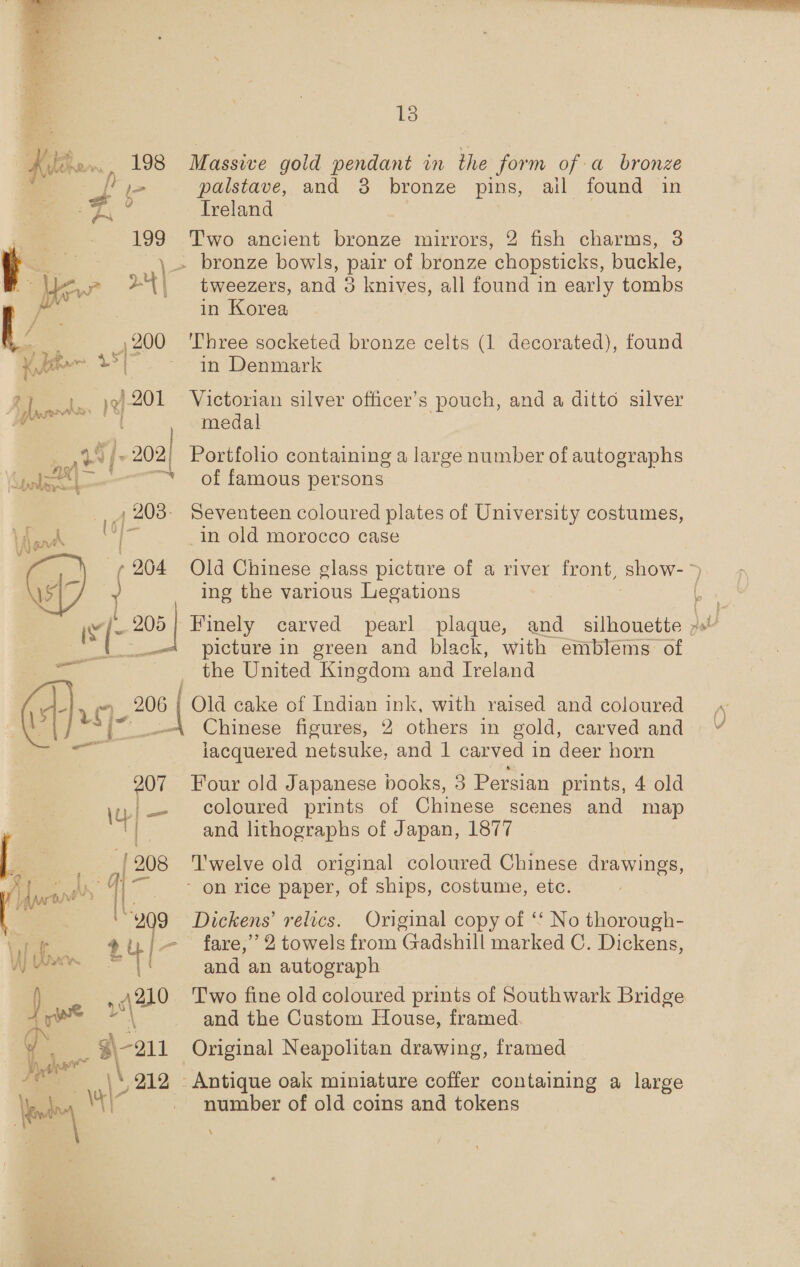 13
198 Massive gold pendant in the form of a bronze
palstave, and 3 bronze pins, all found in
Ireland
199 Two ancient bronze mirrors, 2 fish charms, 3
bronze bowls, pair of bronze chopsticks, buckle,
tweezers, and 3 knives, all found in early tombs
in Korea
200 Three socketed bronze celts (1 decorated), found
in Denmark
201 Victorian silver officer's pouch, and a ditto silver
medal
202 Portfolio containing a large number of autographs
of famous persons
203 Seventeen coloured plates of University costumes,
in old morocco case
204 Old Chinese glass picture of a river front, show-
ing the various Legations
205 Finely carved pearl plaque, and silhouette
picture in green and black, with emblems of
the United Kingdom and Ireland
206 Old cake of Indian ink, with raised and coloured
Chinese figures, 2 others in gold, carved and
lacquered netsuke, and 1 carved in deer horn
207 Four old Japanese books, 3 Persian prints, 4 old
coloured prints of Chinese scenes and map
and lithographs of Japan, 1877
208 Twelve old original coloured Chinese drawings,
on rice paper, of ships, costume, etc.
209 Dickens' relics. Original copy of “ No thorough-
fare,” 2 towels from Gadshill marked C. Dickens,
and an autograph
210 Two fine old coloured prints of Southwark Bridge
and the Custom House, framed.
211 Original Neapolitan drawing, framed
212 Antique oak miniature coffer containing a large
number of old coins and tokens